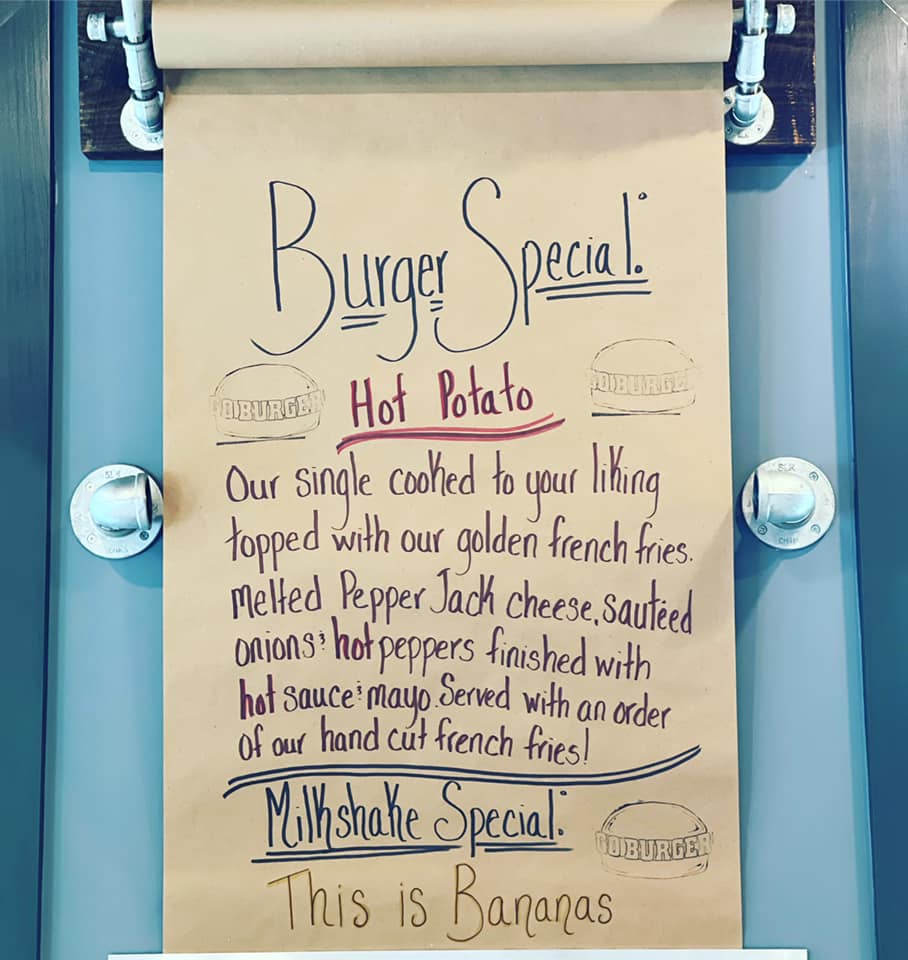 Burger Special:
Hot Potato
GO BURGER
GO BURGER
Our single cooked to your liking
topped with our golden french fries.
Melted Pepper Jack cheese, sautéed
onions & hot peppers finished with
hot sauce & mayo. Served with an order
of our hand cut french fries!
Milkshake Special:
GO BURGER
This is Bananas